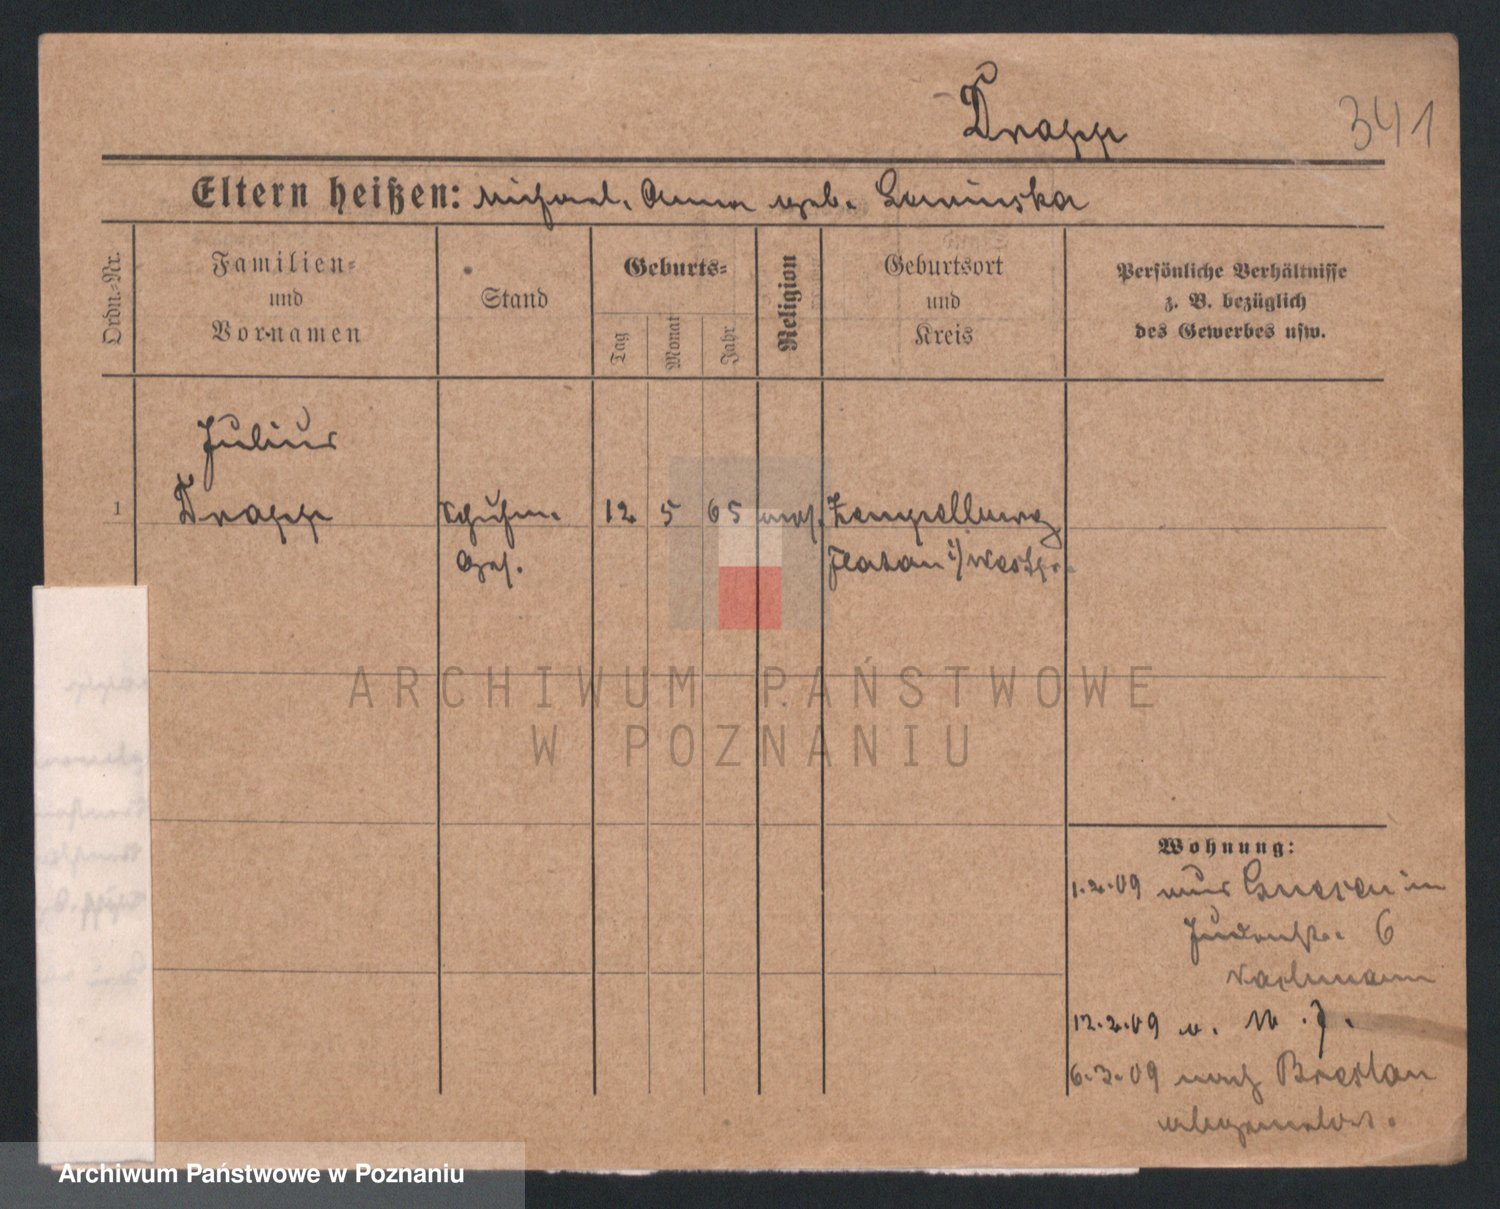 Drapp
341
Eltern heißen: Michael, Anna geb. Lewinska
Ordn.-Nr.
Familien-
und
Vornamen
Stand
Geburts-
Tag
Monat
Jahr
Religion
Geburtsort
und
Kreis
Persönliche Verhältnisse
z. B. bezüglich
des Gewerbes usw.
Julius
1 Drapp Schuhm. 12 5 65 Zempelburg
Ges. Flatau i/Westpr.
ARCHIWUM PAŃSTWOWE
W POZNANIU
Wohnung:
1.2.09 aus Gnesen in
Judenstr. 6
12.2.09
6.3.09 nach Breslau
abgemeldet.
Archiwum Państwowe w Poznaniu